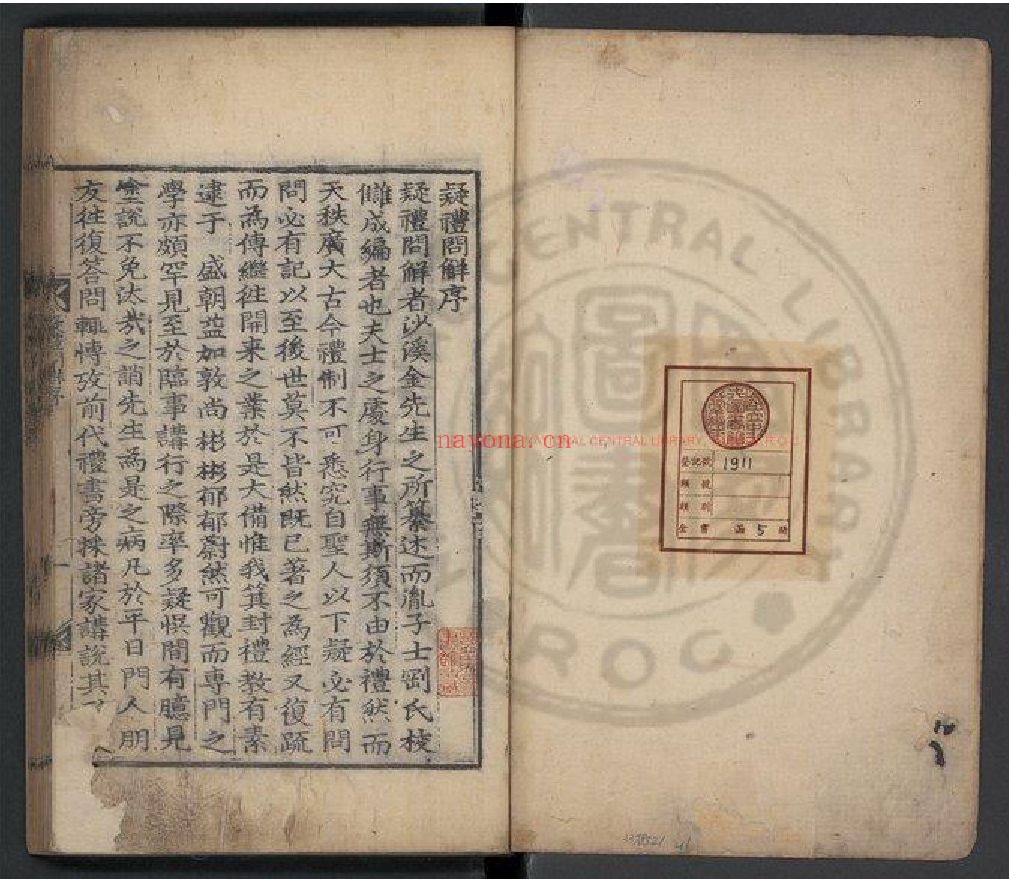 疑禮問解序
疑禮問解者沙溪金先生之所纂述而胤子士剛氏校
讎成編者也夫士之處身行事無斯須不由於禮然而
天秩廣大古今禮制不可悉究自聖人以下疑必有問
問必有記以至後世莫不皆然既已著之為經又復疏
而為傳繼往開來之業於是大備惟我箕封禮教有素
逮于 盛朝益加敦尚彬彬郁郁蔚然可觀而專門之
學亦頗罕見至於臨事講行之際率多疑悞間有臆見
塗說不免汰哉之誚先生為是之病凡於平日門人朋
友往復答問輒愽攷前代禮書旁採諸家講說其
CENTRAL LIBRARY
R.O.C
nayona.cn
登記號 1911
類 號
全書 5